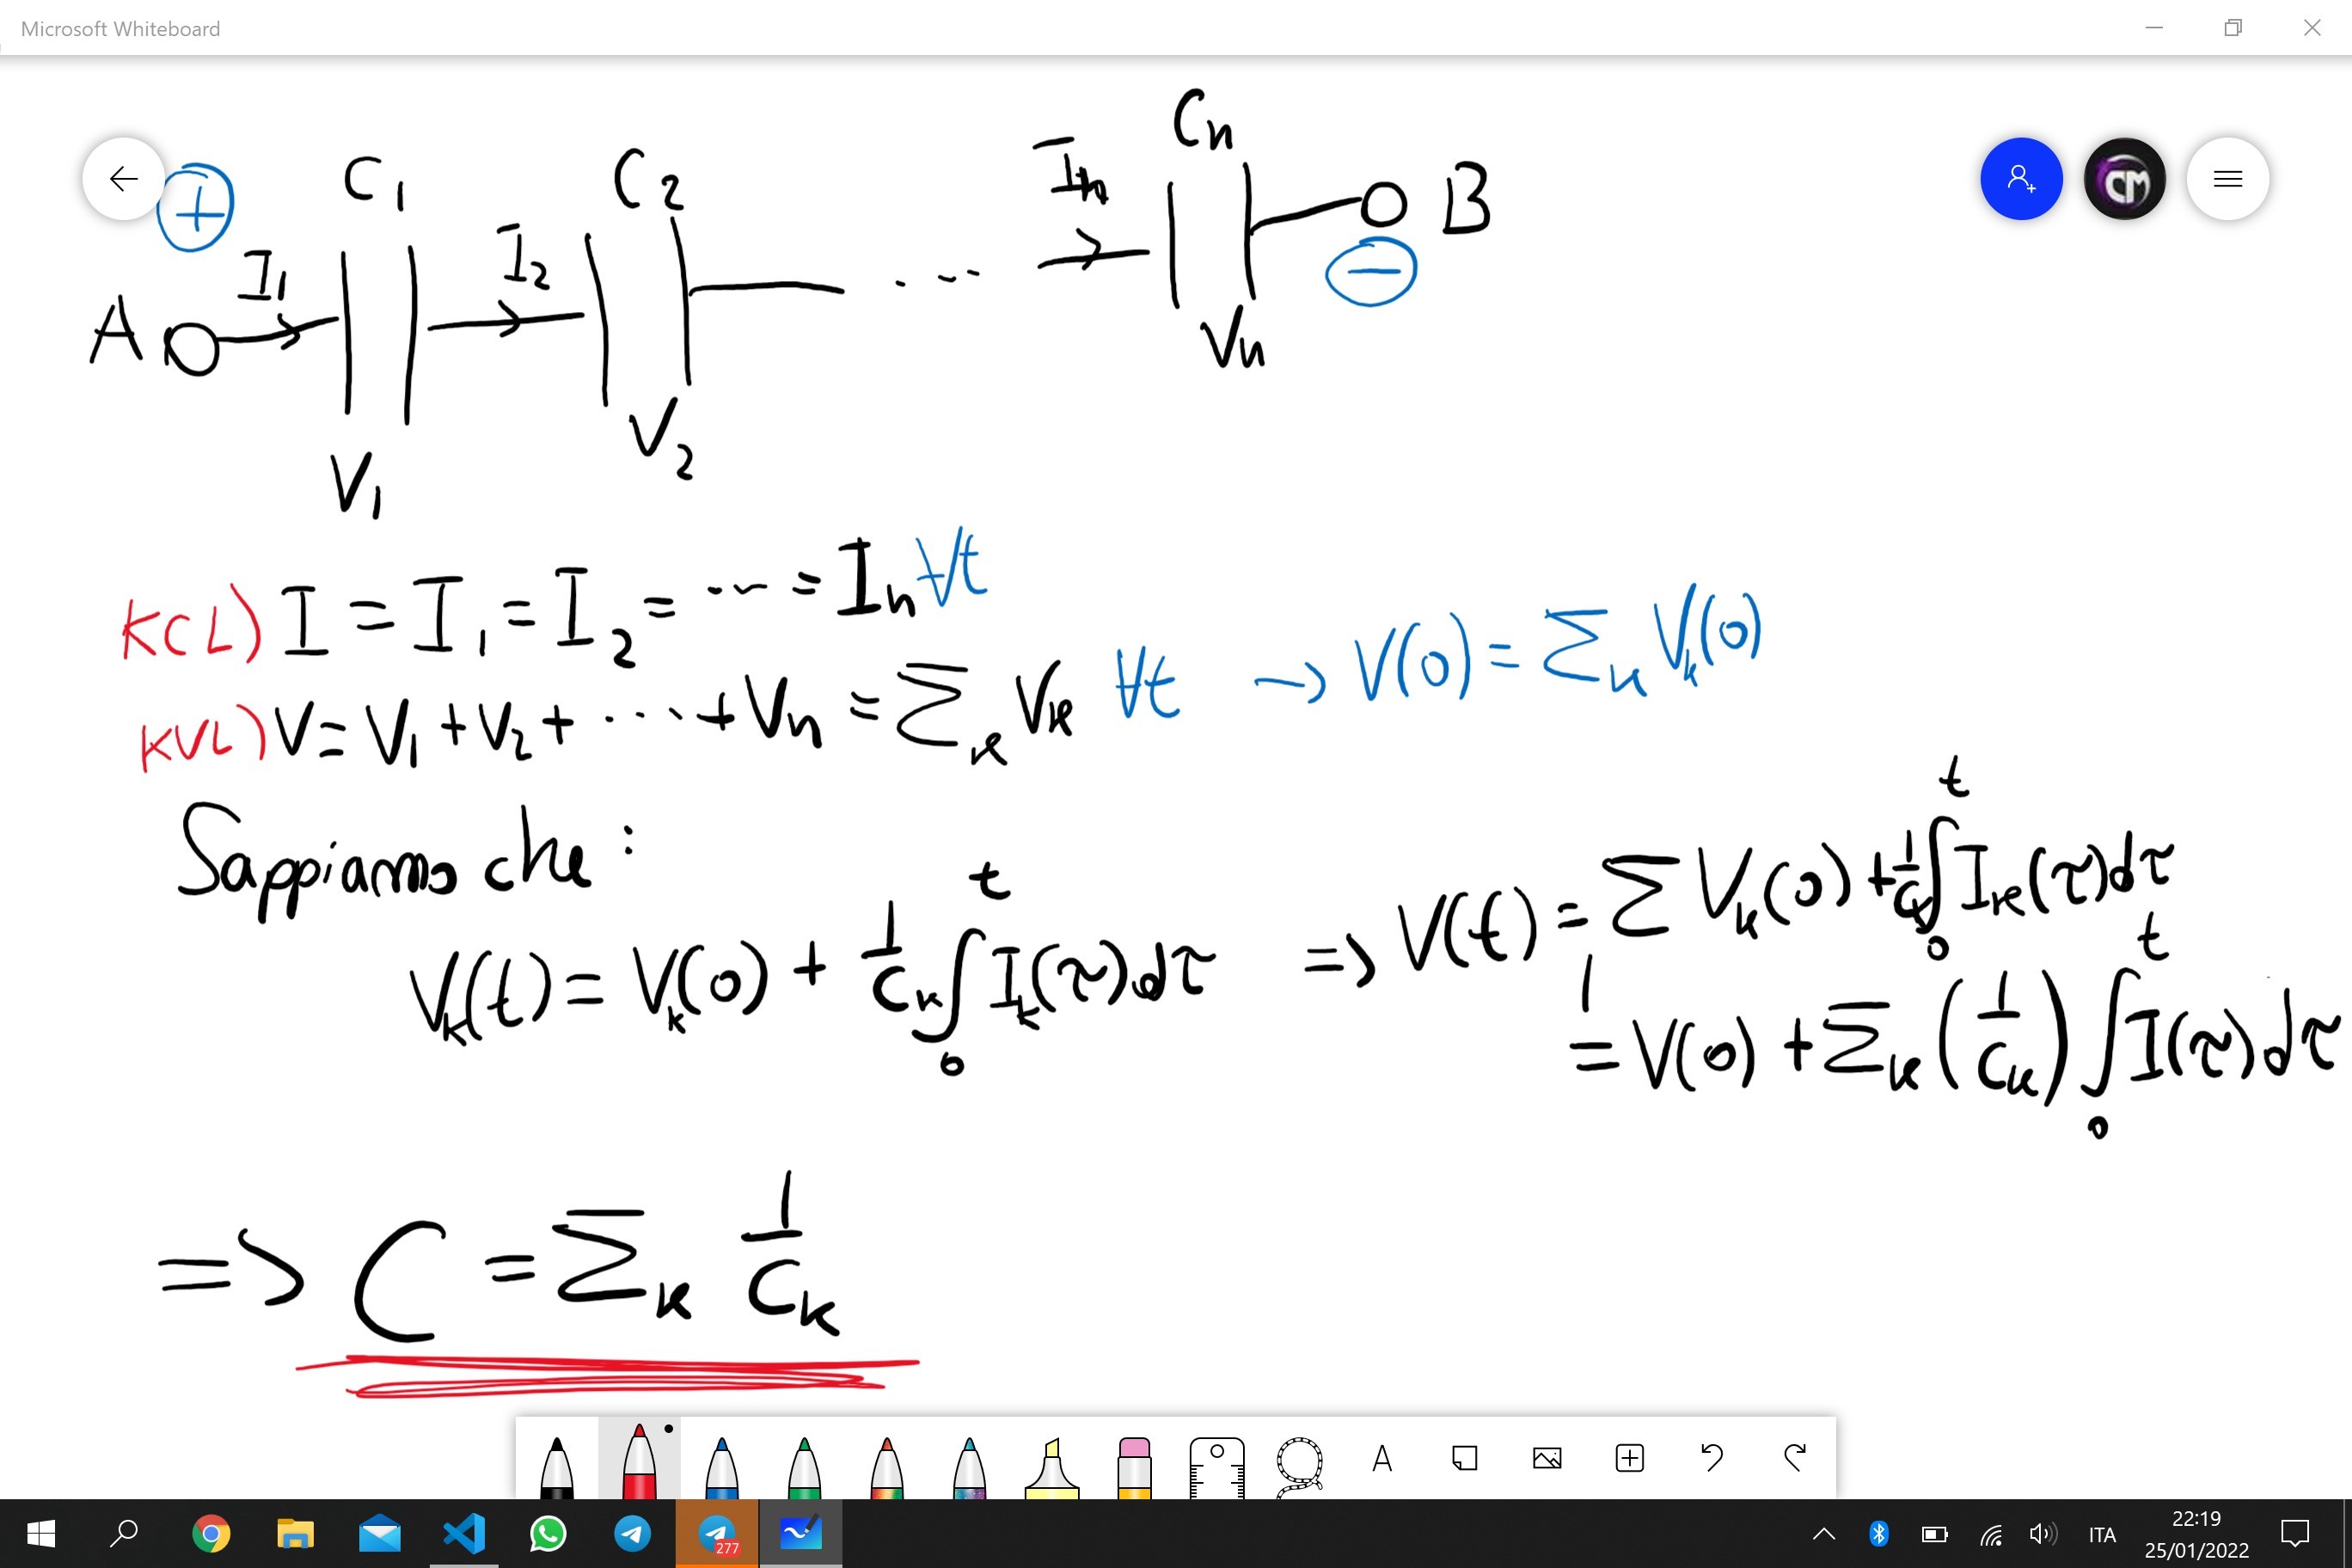 Microsoft Whiteboard
C₁ C₂ Cₙ
+ I₁ I₂ ... Iₙ B
A −
V₁ V₂ Vₙ
KCL) I = I₁ = I₂ = ... = Iₙ ∀t
KVL) V = V₁ + V₂ + ... + Vₙ = Σₖ Vₖ ∀t → V(0) = Σₖ Vₖ(0)
Sappiamo che :
Vₖ(t) = Vₖ(0) + 1/Cₖ ∫₀ᵗ Iₖ(τ)dτ => V(t) = Σ Vₖ(0) + 1/Cₖ ∫₀ᵗ Iₖ(τ)dτ
= V(0) + Σₖ (1/Cₖ) ∫₀ᵗ I(τ)dτ
=> C = Σₖ 1/Cₖ
A
277
ITA
22:19
25/01/2022
CM